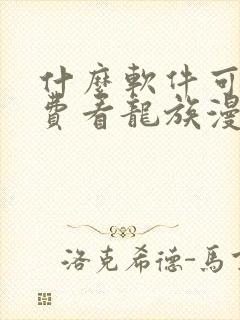 什麼軟件可
費看龍族漫
洛克希德-馬丁